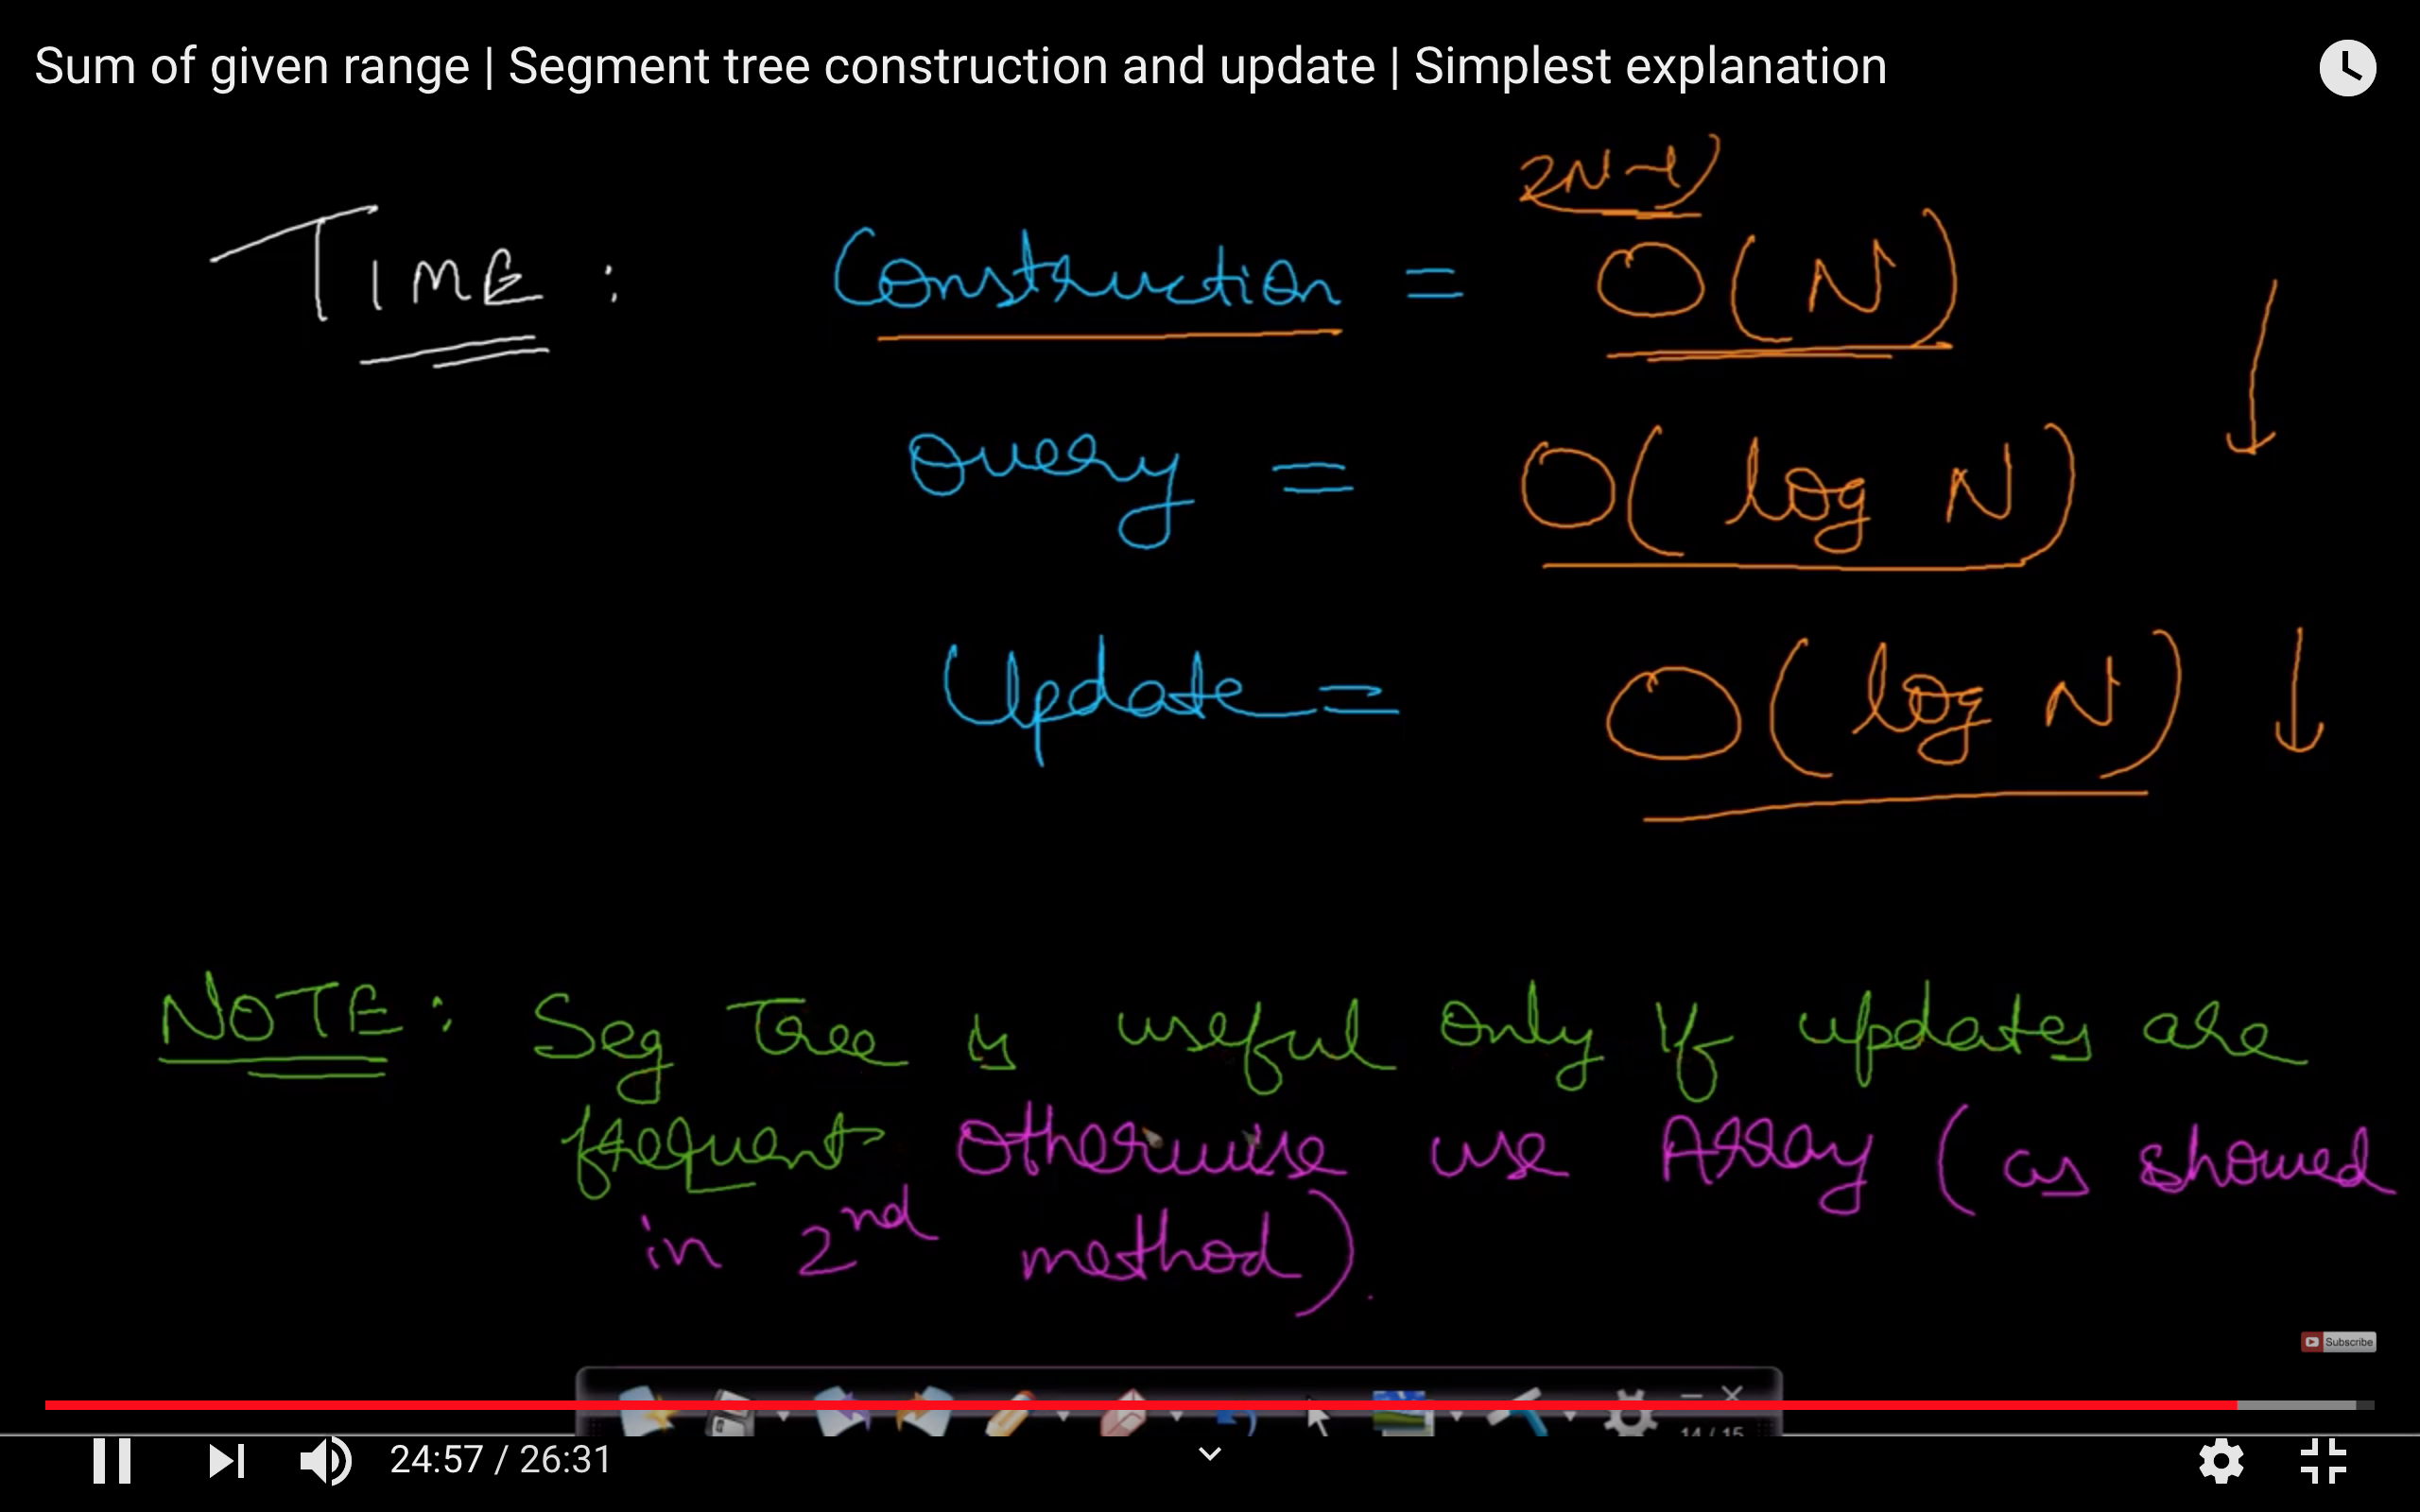 Sum of given range | Segment tree construction and update | Simplest explanation
2N-1
TIME : Construction = O(N)
Query = O(log N)
Update = O(log N)
NOTE: Seg Tree is useful only if updates are
frequent otherwise use Array (as showed
in 2nd method).
Subscribe
14 / 15
24:57 / 26:31